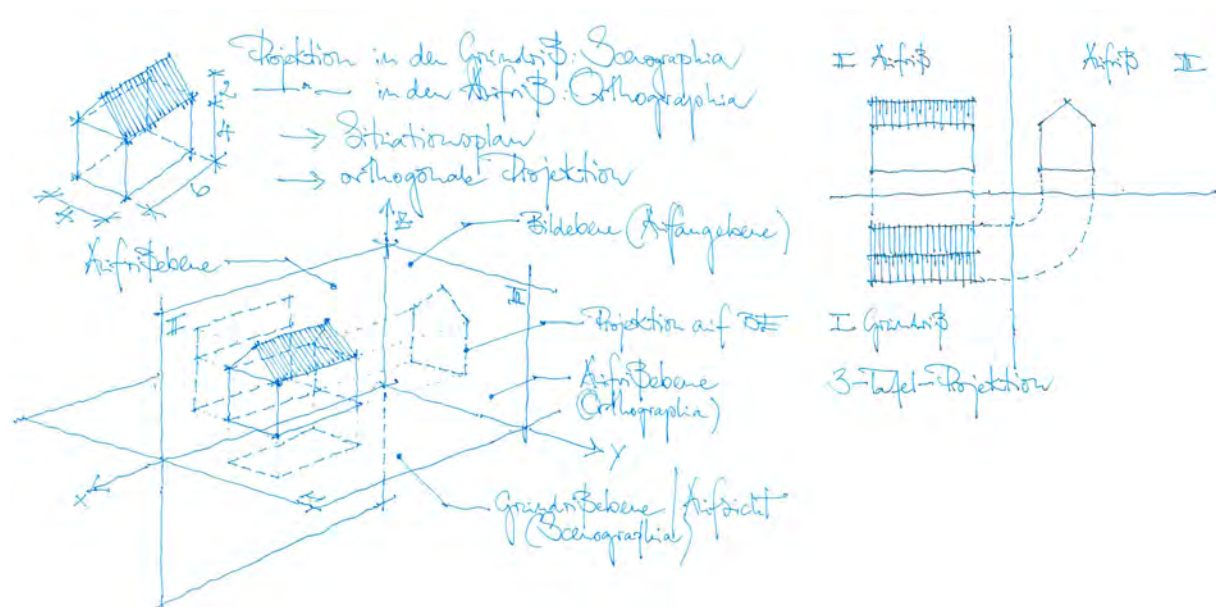 Projektion in den Grundriß: Scenographia
—"— in den Aufriß: Orthographia
→ Situationsplan
→ orthogonale Projektion
2
4
6
4
Aufrißebene
Z
Bildebene (Auffangebene)
II
III
Projektion auf BE
Aufrißebene
(Orthographia)
X
Y
I
Grundrißebene / Aufsicht
(Scenographia)
II Aufriß
Aufriß III
I Grundriß
3-Tafel-Projektion